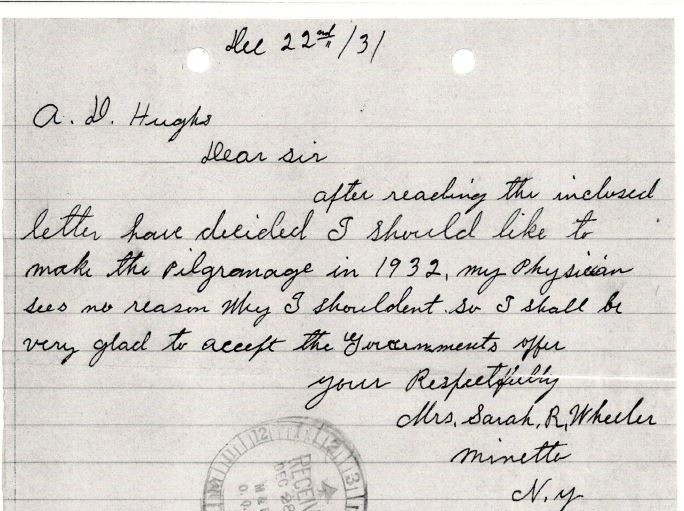 Dec 22nd/31
A. D. Hughs
Dear sir
after reaching the inclosed
letter have decided I should like to
make the Pilgranage in 1932, my Physician
sees no reason Why I shouldent. so I shall be
very glad to accept the Government's offer
your Respectfully
Mrs, Sarah, R, Wheeler
Minetto
N. y
12 1 2 3
RECEIVED
DEC 28